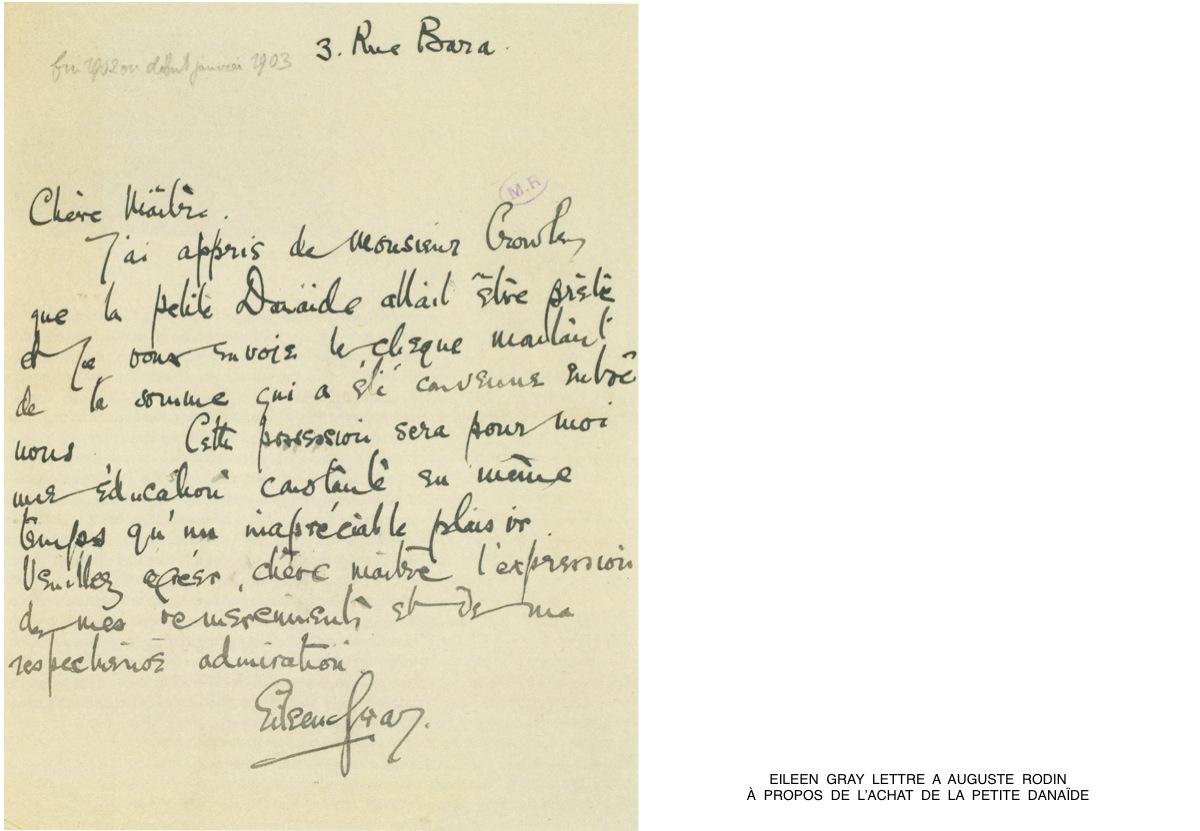 3. Rue Bara.
fin 1902 ou début janvier 1903
M.R
Chère Maître.
J'ai appris de Monsieur Crowley
que la petite Danaïde allait être prête
et je vous envoie le cheque montant
de la somme qui a été convenue entre
nous Cette possession sera pour moi
une éducation constante en même
temps qu'un inapréciable plaisir.
Veuillez agréer, chère maitre l'expression
de mes remerciements et de ma
respectueuse admiration
Eileen Gray.
EILEEN GRAY LETTRE A AUGUSTE RODIN
À PROPOS DE L'ACHAT DE LA PETITE DANAÏDE